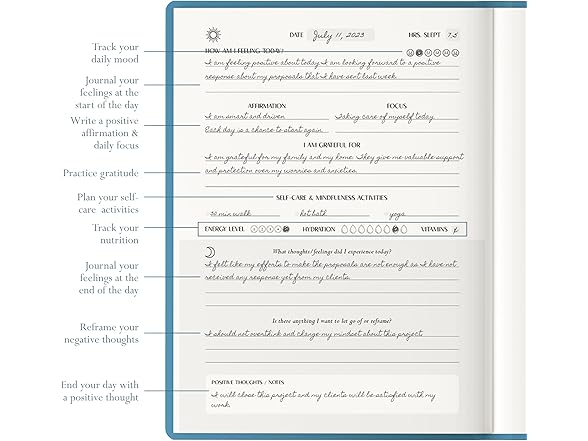 DATE July 11, 2023 HRS. SLEPT 7,5
Track your
daily mood
HOW AM I FEELING TODAY?
I am feeling positive about today. I am looking forward to a positive
response about my proposals that I have sent last week.
Journal your
feelings at the
start of the day
AFFIRMATION FOCUS
I am smart and driven. Taking care of myself today.
Each day is a chance to start again.
Write a positive
affirmation &
daily focus
I AM GRATEFUL FOR
I am grateful for my family and my home. They give me valuable support
and protection over my worries and anxieties.
Practice gratitude
SELF-CARE & MINDFULNESS ACTIVITIES
min walk hot bath yoga
Plan your self-
care activities
Track your
nutrition
ENERGY LEVEL HYDRATION VITAMINS
What thoughts/feelings did I experience today?
I felt like my efforts to make the proposals are not enough as I have not
received any response yet from my clients.
Journal your
feelings at the
end of the day
Is there anything I want to let go of or reframe?
I should not overthink and change my mindset about this project
Reframe your
negative thoughts
POSITIVE THOUGHTS / NOTES
I will close this project and my clients will be satisfied with my
work.
End your day with
a positive thought